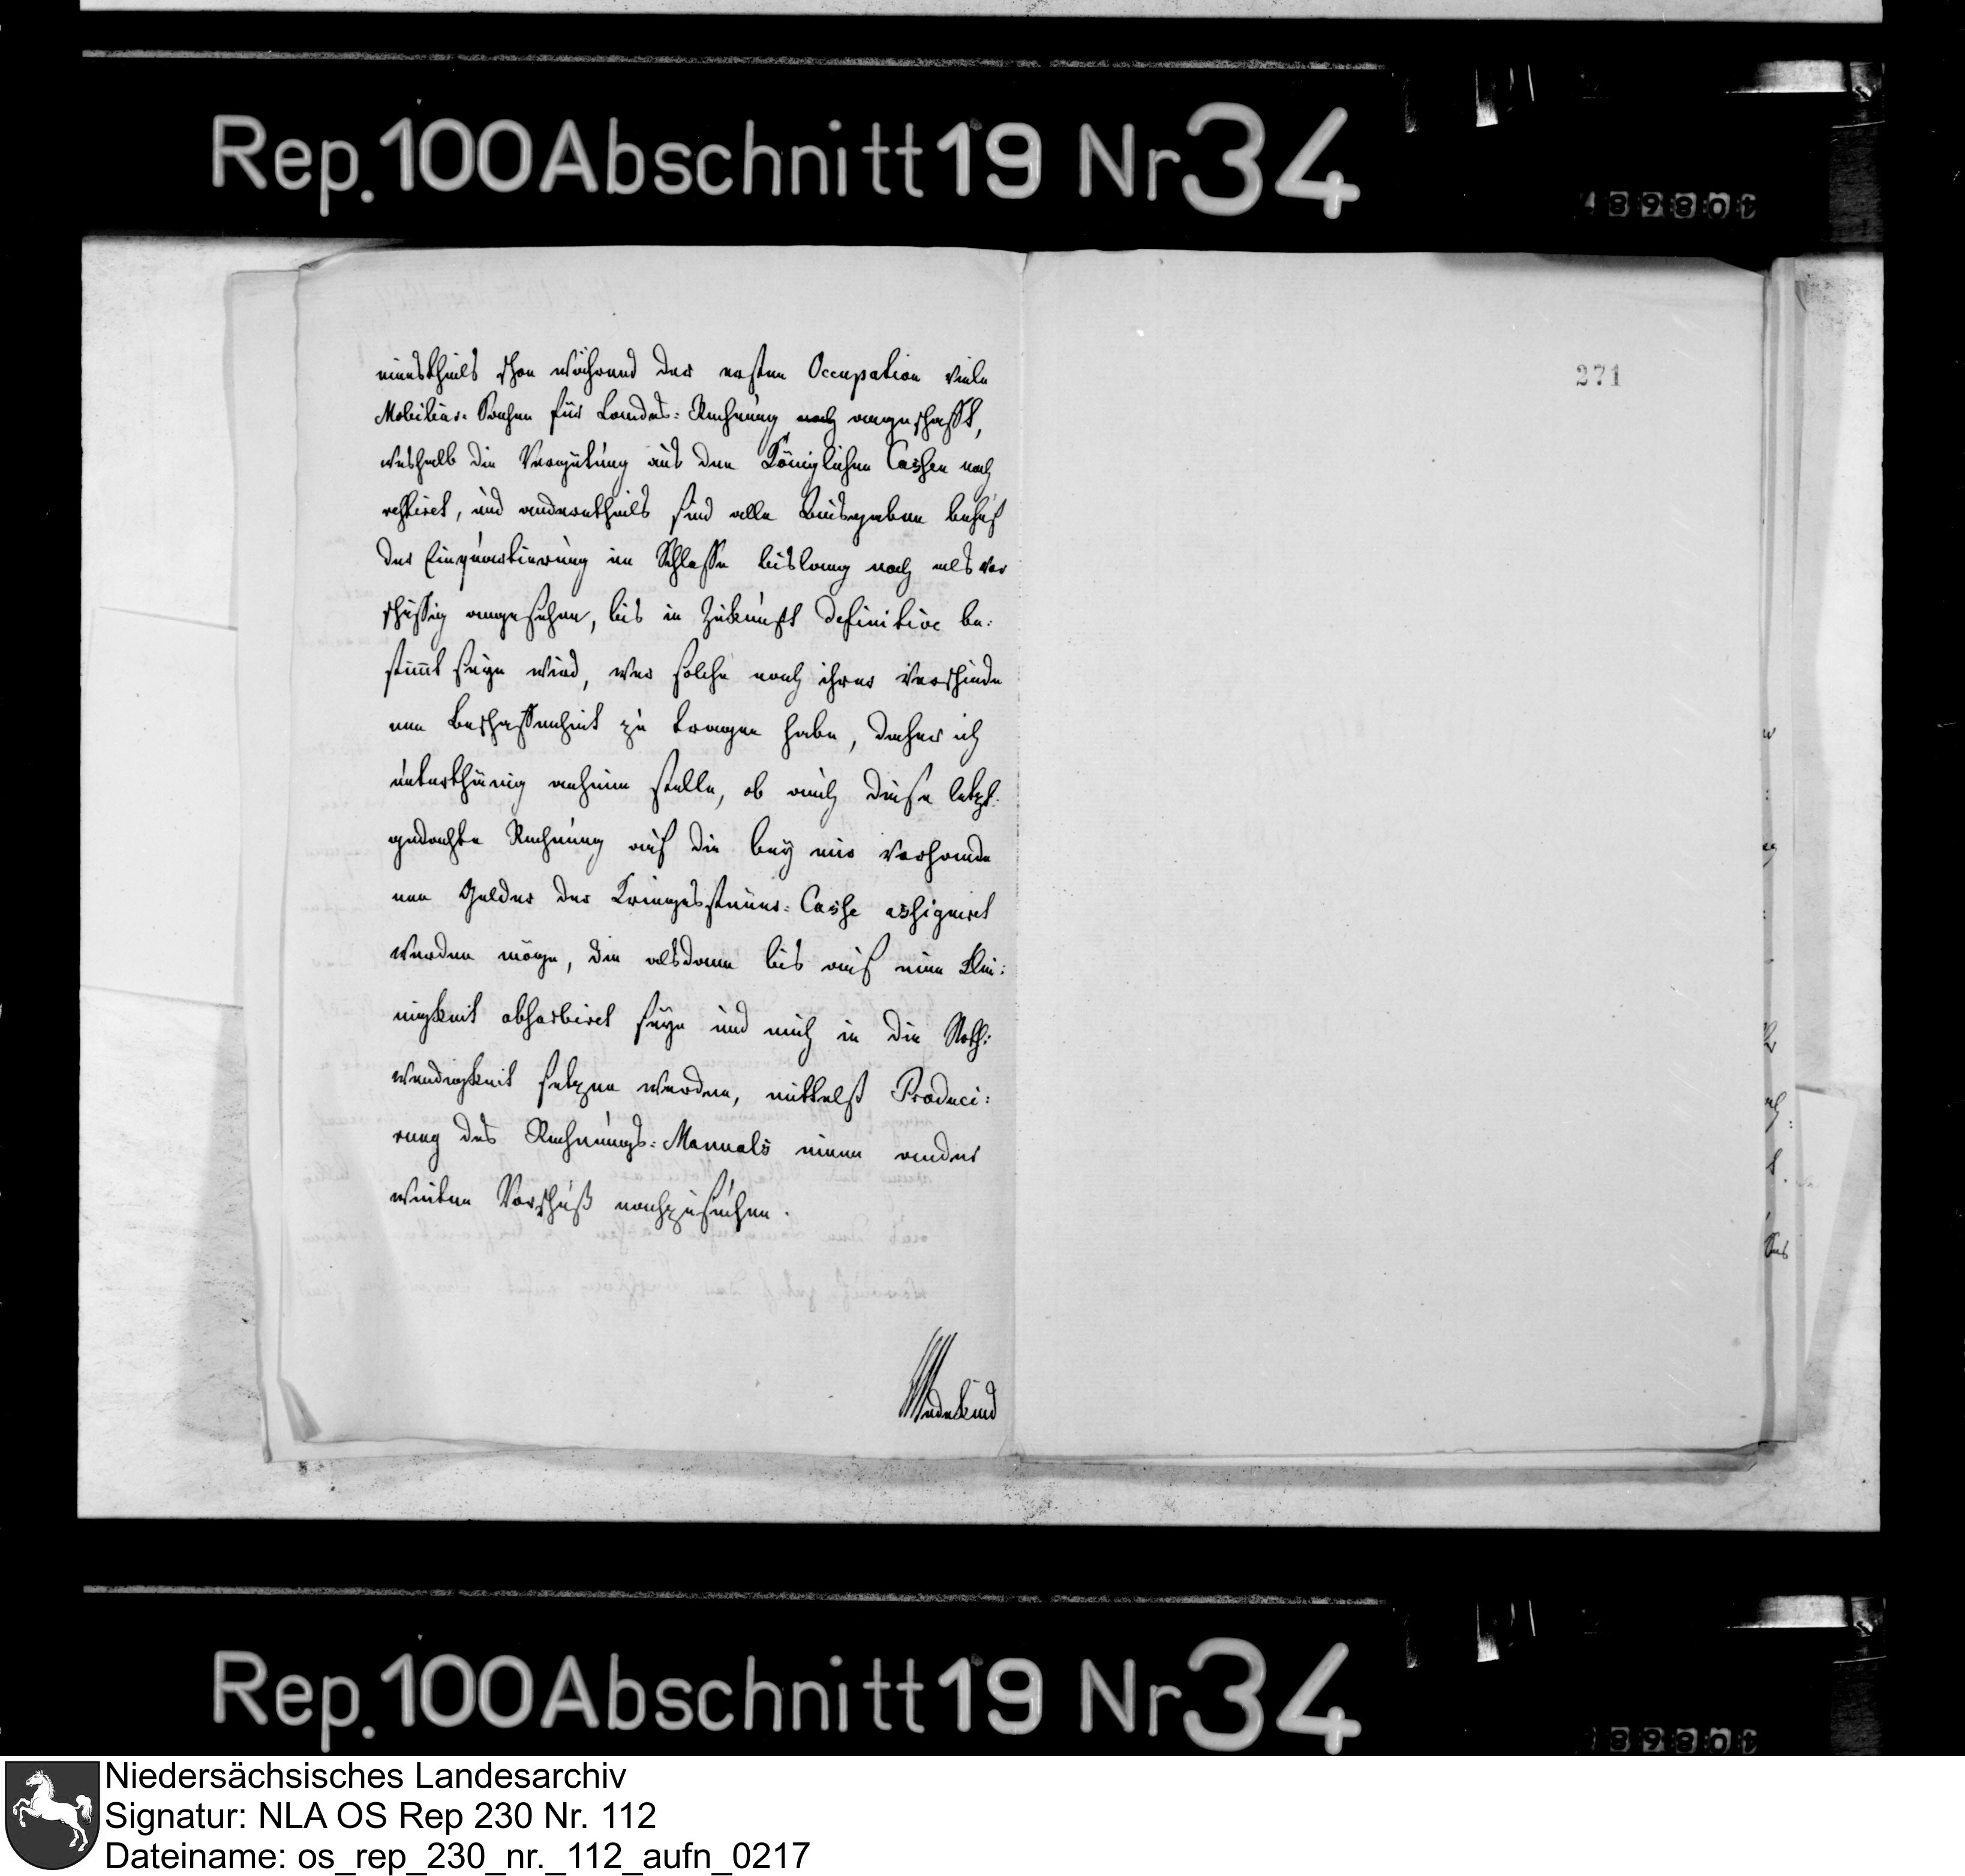 Rep. 100 Abschnitt 19 Nr 34
271
einestheils schon während der ersten Occupation viele
Mobiliar-Sachen für Landes-Rechnung noch angeschafft,
weshalb die Vergütung aus den Königlichen Cassen noch
restiret, und anderntheils sind alle Ausgaben behuf
der Einquartierung im Schlosse bislang noch als vor
schüssig angesehen, bis in Zukunft definitive be-
stimt seyn wird, wer solche nach ihrer verschiede
nen Beschaffenheit zu tragen habe, daher ich
unterthänig anheim stelle, ob auch diese letzt-
gedachte Rechnung auf die bey mir vorhande
nen Gelder der Kriegessteuer-Casse assigniret
werden möge, die alsdann bis auf eine Klei-
nigkeit absorbiret seyn und mich in die Noth-
wendigkeit setzen werden, mittelst Produci-
rung des Rechnungs-Manuals einen ander
weiten Vorschuß nachzusuchen.
Wedekind
Rep. 100 Abschnitt 19 Nr 34
Niedersächsisches Landesarchiv
Signatur: NLA OS Rep 230 Nr. 112
Dateiname: os_rep_230_nr._112_aufn_0217